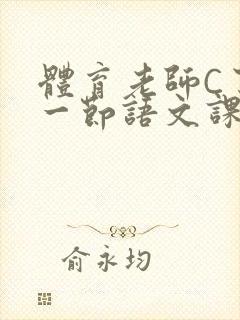 體育老師C
一節語文課
俞永均